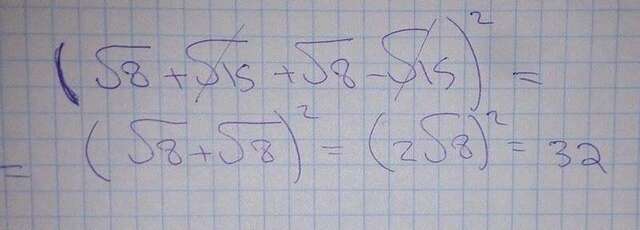 (√8 + √15 + √8 - √15)² =
= (√8 + √8)² = (2√8)² = 32